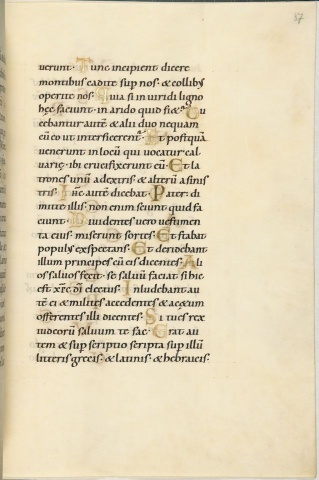 57
uerunt· Tunc incipient dicere
montibus cadite sup nos· & collibus
operite nos· Quia si in uiridi ligno
hęc faciunt· in arido quid fi&· Du
cebantur autē & alii duo nequam
cū eo ut interficerent· Et postquā
uenerunt in locū qui uocatur cal
uarię· ibi crucifixerunt eū· Et la
trones unū adextris & alterū a sinis
tris· Ihc autē dicebat· Pater· di
mitte illis· non enim sciunt quid fa
ciunt· Diuidentes uero uestimen
ta eius· miserunt sortes· Et stabat
populus exspectans· Et deridebant
illum principes cū eis dicentes· Ali
os saluos fecit· se saluū faciat si hic
est xp̄c d̄i electus· Inludebant au
tē ei & milites accedentes & ac&um
offerentes illi dicentes· Si tu es rex
iudeorū saluum te fac· Erat au
tem & sup scriptio scripta sup illū
litteris grecis· & latinis· & hebraicis·